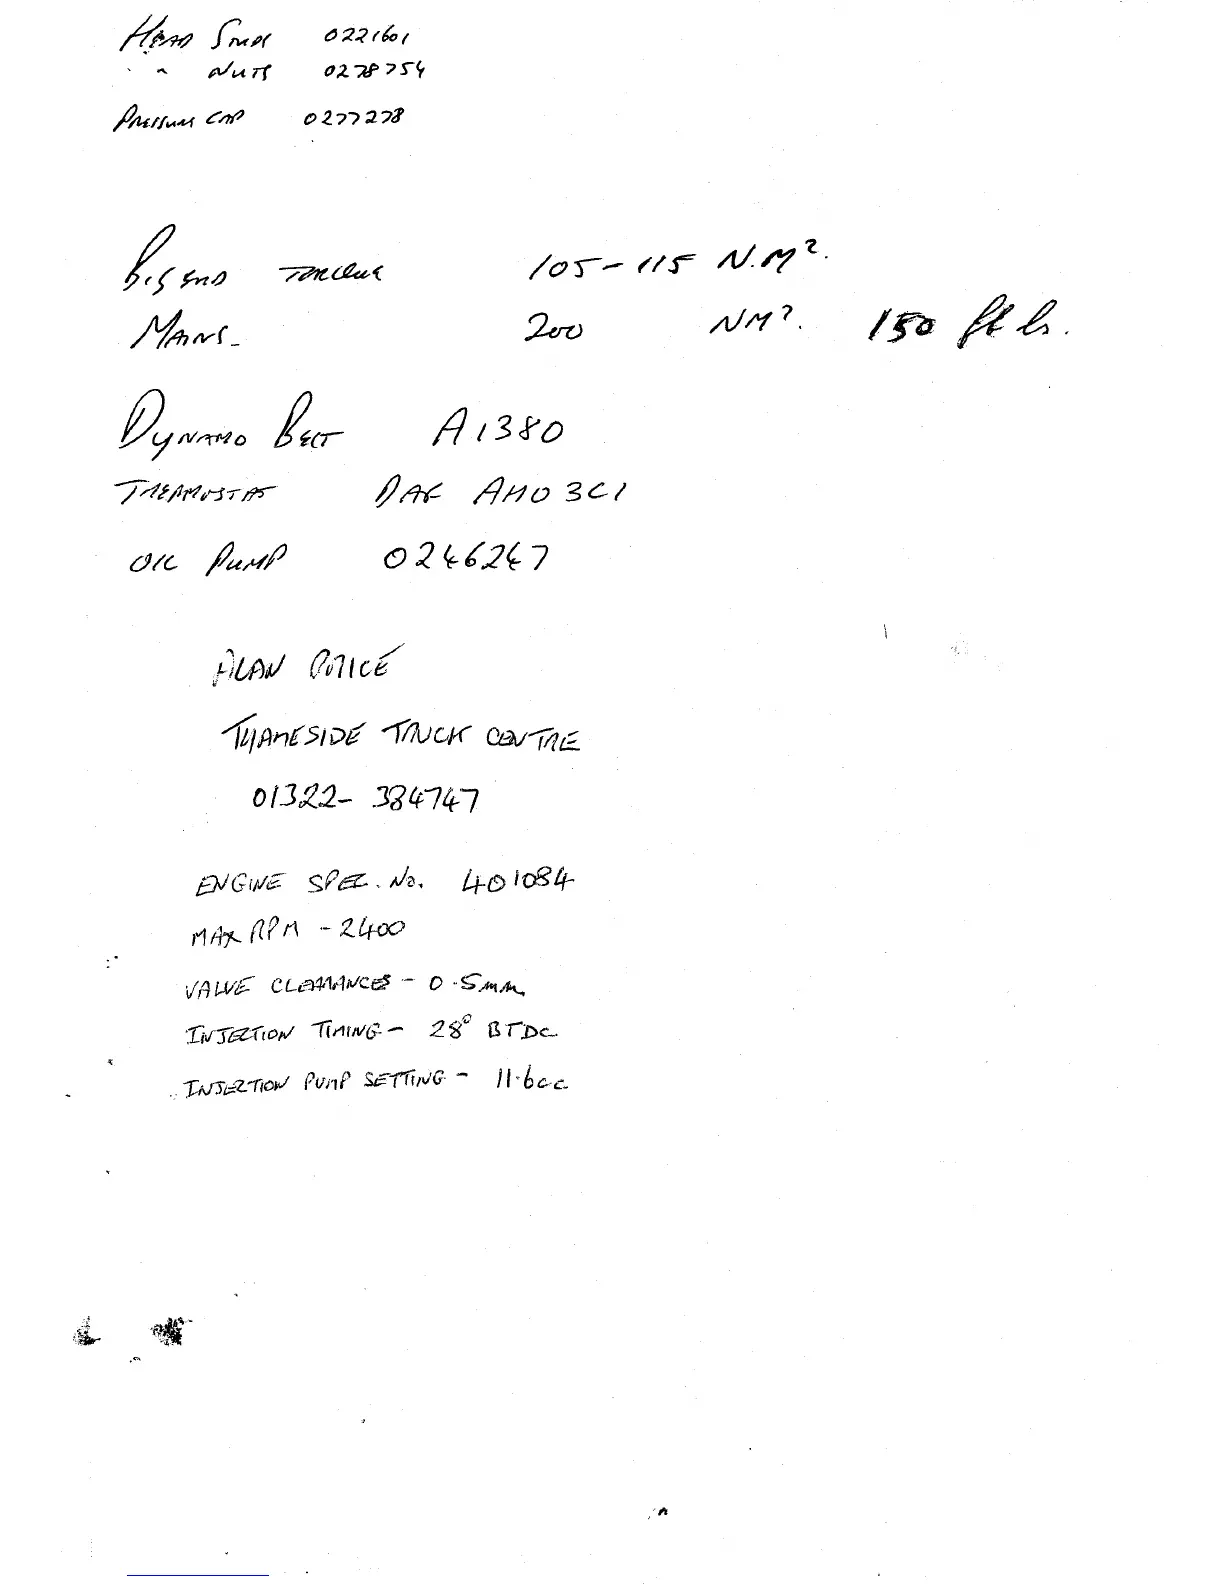 HEAD STUDS 0221601
" " NUTS 0278754
PRESSURE CAP 0277278
BIG END TORQUE 105-115 N.M².
MAINS - 200 NM². 150 ft lb.
DYNAMO BELT A1380
THERMOSTAT DAF AHO 3C1
OIL PUMP 0246247
ALAN PRICE
THAMESIDE TRUCK CENTRE
01322- 384747
ENGINE SPEC. No. 401084
MAX RPM - 2400
VALVE CLEARANCES - 0.5mm
INJECTION TIMING - 28° BTDC
INJECTION PUMP SETTING - 11.6cc